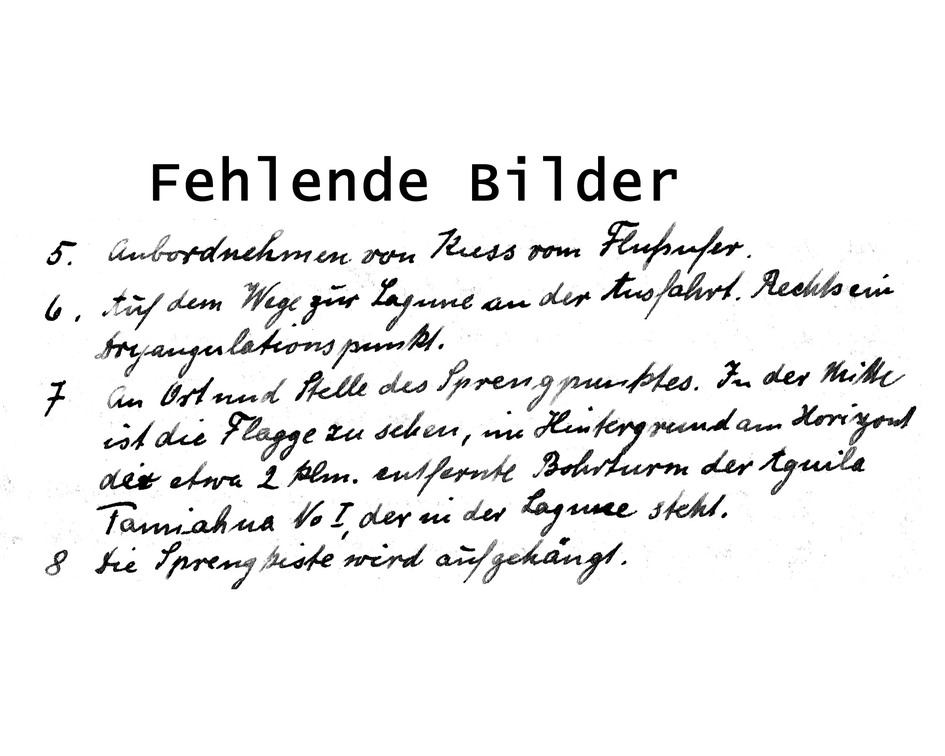 Fehlende Bilder
5. Anbordnehmen von Kies vom Flußufer.
6. Auf dem Wege zur Lagune an der Ausfahrt. Rechts ein
Tryangulationspunkt.
7 An Ort und Stelle des Sprengpunktes. In der Mitte
ist die Flagge zu sehen, im Hintergrund am Horizont
der etwa 2 klm. entfernte Bohrturm der Aguila
Tamiahua No I, der in der Lagune steht.
8 Die Sprengkiste wird aufgehängt.